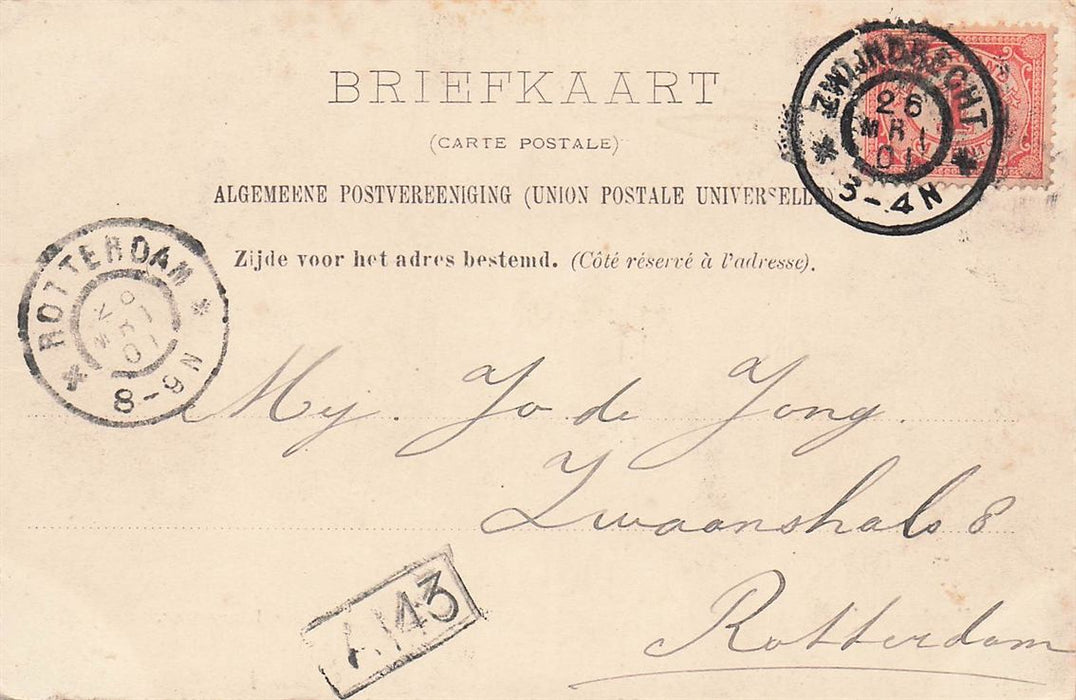 BRIEFKAART
(CARTE POSTALE)
ALGEMEENE POSTVEREENIGING (UNION POSTALE UNIVERSELLE)
Zijde voor het adres bestemd. (Côté réservé à l'adresse).
ZWIJNDRECHT
26
MRT
01
3-4N
ROTTERDAM
MRT
01
8-9N
Mej. Jo de Jong
Zwaanshals 8
Rotterdam
143